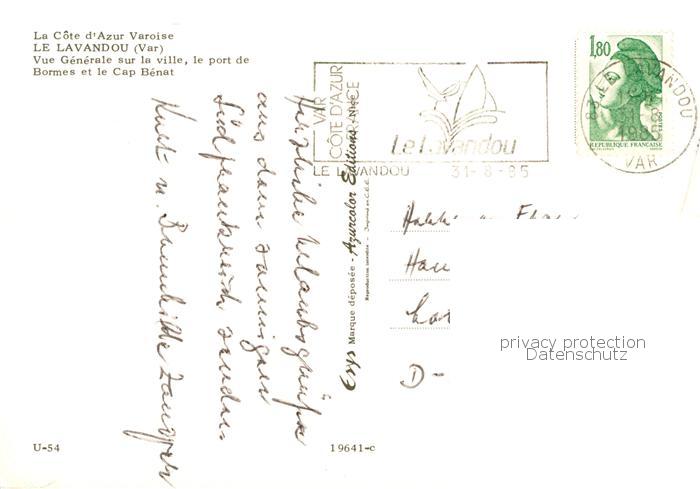 La Côte d'Azur Varoise
LE LAVANDOU (Var)
Vue Générale sur la ville, le port de
Bormes et le Cap Bénat
VAR
CÔTE D'AZUR
FRANCE
Le Lavandou
LE LAVANDOU 31-8-85
1,80
REPUBLIQUE FRANÇAISE
POSTES
83 LE LAVANDOU
VAR
Herzliche Urlaubsgrüße
aus dem sonnigen
Südfrankreich senden
Kurt u. Brunhilde
Marque déposée - Azurcolor Editions - Nice
Reproduction interdite - Imprimé en C.E.E.
D-
privacy protection
Datenschutz
U-54
19641-c